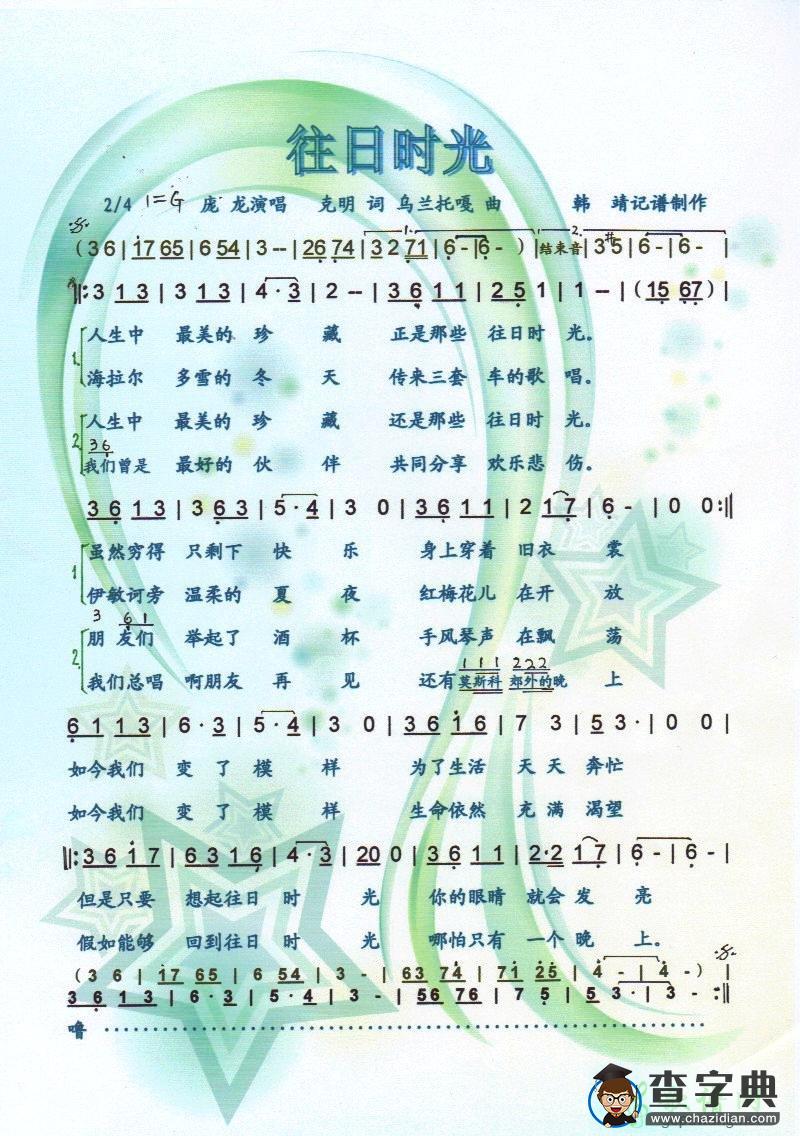 往日时光
2/4 1=G 庞 龙演唱 克明 词 乌兰托嘎 曲 韩 靖记谱制作
(3 6 | 17 65 | 6 54 | 3 -- | 26 74 | 3 2 71 | 6 - | 6 - ) | 结束音 | 3 #5 | 6 - | 6 - |
‖: 3 1 3 | 3 1 3 | 4 · 3 | 2 -- | 3 6 1 1 | 2 5 1 | 1 -- | (15 67) |
1. 人生中 最美的 珍 藏 正是那些 往日时 光。
海拉尔 多雪的 冬 天 传来三套 车的歌 唱。
2. 人生中 最美的 珍 藏 还是那些 往日时 光。
3 6
我们曾是 最好的 伙 伴 共同分享 欢乐悲 伤。
3 6 1 3 | 3 6 3 | 5 · 4 | 3 0 | 3 6 1 1 | 2 1 7 | 6 - | 0 0 :‖
1 虽然穷得 只剩下 快 乐 身上穿着 旧衣 裳
伊敏诃旁 温柔的 夏 夜 红梅花儿 在开 放
3 6 1
2. 朋 友们 举起了 酒 杯 手风琴声 在飘 荡
1 1 1 2 2 2
我们总唱 啊朋友 再 见 还有 莫斯科 郊外的晚 上
6 1 1 3 | 6 · 3 | 5 · 4 | 3 0 | 3 6 1 6 | 7 3 | 5 3 · | 0 0 |
如今我们 变 了 模 样 为了生活 天 天 奔忙
如今我们 变 了 模 样 生命依然 充 满 渴望
‖: 3 6 1 7 | 6 3 1 6 | 4 · 3 | 20 0 | 3 6 1 1 | 2·2 1 7 | 6 - | 6 - |
但是只要 想起往日 时 光 你的眼睛 就会 发 亮
假如能够 回到往日 时 光 哪怕只有 一个 晚 上。
(3 6 | 17 65 | 6 54 | 3 - | 63 74 | 71 25 | 4 - | 4 - ) |
3 6 1 3 | 6 · 3 | 5 · 4 | 3 - | 56 76 | 7 5 | 5 3 · | 3 - :‖
噜
查字典
www.chazidian.com